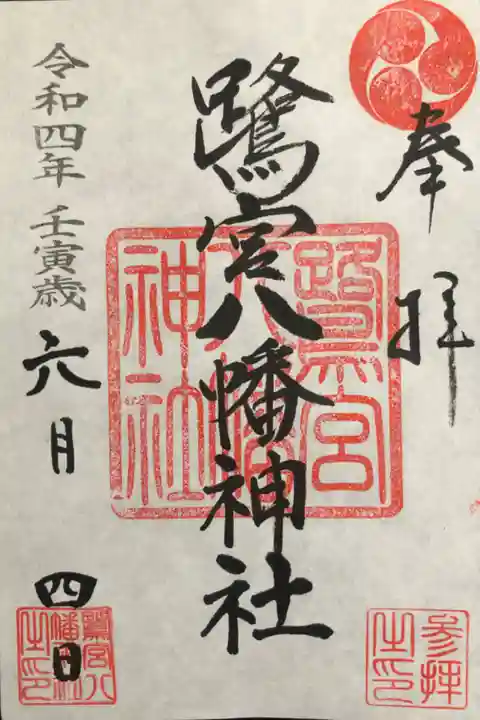 奉拝
鷺宮八幡神社
鷺宮八幡神社
令和四年 壬寅歳 六月 四日
参拝之印
鷺宮八幡神社之印